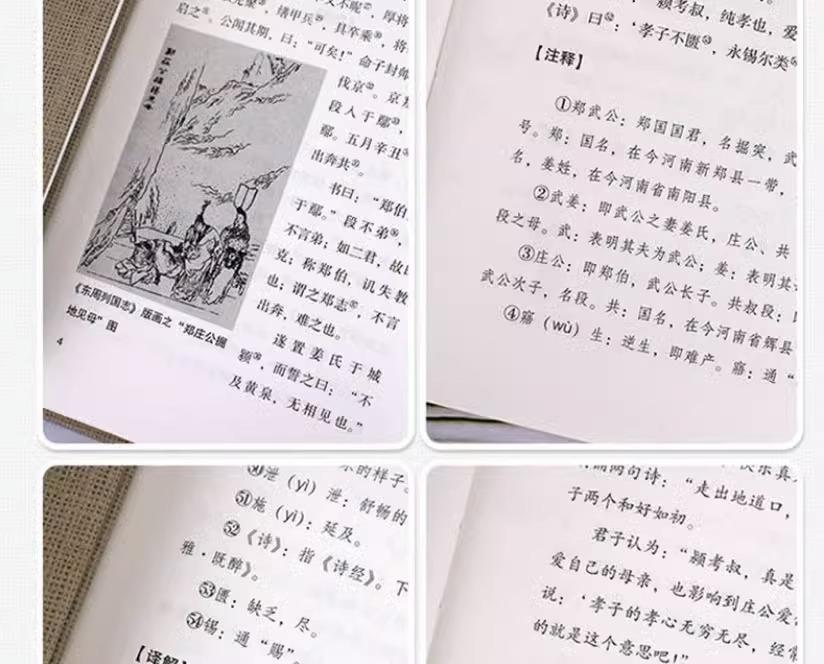 启之。公闻其期，曰：“可矣！”命子封帅
伐京。京
段人于鄢，
鄢。五月辛丑
出奔共。
书曰：“郑伯
于鄢。”段不弟，
不言弟；如二君，故
克；称郑伯，讥失教
也；谓之郑志，不言
出奔，难之也。
遂置姜氏于城
颍，而誓之曰：“不
及黄泉，无相见也。”
《东周列国志》版画之“郑庄公掘
地见母”图
4
颖考叔，纯孝也，爱
《诗》曰：‘孝子不匮，永锡尔类
【注释】
①郑武公：郑国国君，名掘突，武
号。郑：国名，在今河南新郑县一带，
名，姜姓，在今河南省南阳县。
②武姜：即武公之妻姜氏，庄公、共
段之母。武：表明其夫为武公；姜：表明其
③庄公：即郑伯，武公长子。共叔段：
武公次子，名段。共：国名，在今河南省辉县
④寤（wù）生：逆生，即难产。寤：通“
的样子。
㊿泄（yì）泄：舒畅的
51施（yì）：延及。
52《诗》：指《诗经》。下
雅·既醉》。
53匮：缺乏，尽。
54锡：通“赐”。
【译解】
两句诗：“走出地道口，
子两个和好如初。
君子认为：“颍考叔，真是
爱自己的母亲，也影响到庄公爱
说：‘孝子的孝心无穷无尽，经常
的就是这个意思吧！”